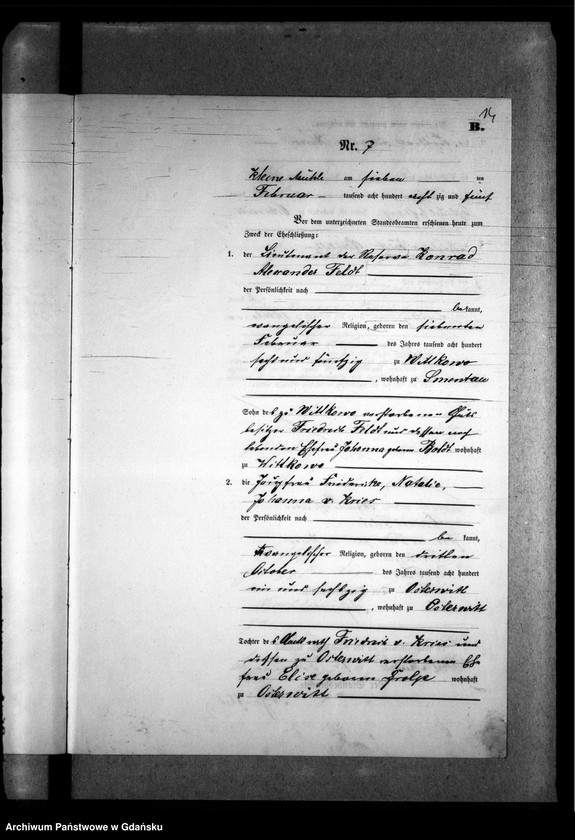 14
B.
Nr. 7
Kleine Mühle am sieben ten
Februar tausend acht hundert acht zig und fünf
Vor dem unterzeichneten Standesbeamten erschienen heute zum
Zweck der Eheschließung:
1. der Lieutenant der Reserve Konrad
Alexander Feldt
der Persönlichkeit nach
be kannt,
evangelischer Religion, geboren den siebenten
Februar des Jahres tausend acht hundert
sechs und fünfzig zu Wittkowo
, wohnhaft zu Smentau
Sohn des zu Wittkowo verstorbenen Guts
besitzer Friedrich Feldt und dessen noch
lebenden Ehefrau Johanna geborene Boldt wohnhaft
zu Wittkowo
2. die Jungfrau Friederike, Natalie,
Johanna v. Kries
der Persönlichkeit nach
be kannt,
evangelischer Religion, geboren den dritten
October des Jahres tausend acht hundert
ein und sechszig zu Osterwitt
, wohnhaft zu Osterwitt
Tochter des Friedrich v. Kries und
dessen zu Osterwitt verstorbenen Ehe
frau Elise geborene wohnhaft
zu Osterwitt
Archiwum Państwowe w Gdańsku